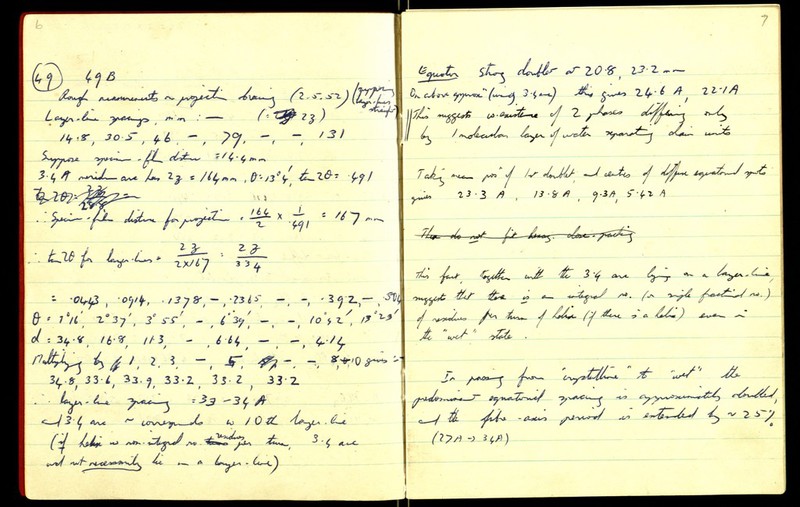 6
49 49B
Rough measurements on projection drawing (2.5.52)
Layer-line spacings, mm :— (= 2z)
14.8, 30.5, 46, -, 79, -, -, 131
Suppose specimen-film distance = 14.4mm
3.4 A meridian arc has 2z = 164mm, θ=13°4', tan 2θ = .491
tan 2θ =
∴ Specimen-film distance for projection = 164/2 × 1/.491 = 167 mm
∴ tan 2θ for layer-lines = 2z/2×167 = 2z/334
= .0443, .0914, .1378, -, .2365, -, -, .392, -,
θ = 1°16', 2°37', 3°55', -, 6°39', -, -, 10°42', 13°23'
d = 34.8, 16.8, 11.3, -, 6.64, -, -, 4.14
Multiplying by 1, 2, 3, -, 5, -, -, 8 gives :-
34.8, 33.6, 33.9, 33.2, 33.2, 33.2
∴ layer-line spacing = 33-34 A
and 3.4 arc ~ corresponds to 10th layer-line
(if helix has non-integral no. residues per turn, 3.4 arc
will not necessarily lie on a layer-line)
7
Equator strong doublet at 20.8, 23.2 mm
On above approxn (using 3.4 arc) this gives 24.6 A, 22.1 A
This suggests co-existence of 2 phases differing only
by 1 molecular layer of water separating chain units
Taking mean posn of 1st doublet, and centres of diffuse equatorial spots
gives 23.3 A, 13.8 A, 9.3 A, 5.42 A
These do not fit hexag. close-packing
This fact, together with the 3.4 arc lying on a layer-line,
suggests that there is an integral no. (or single fractional no.)
of residues per turn of helix (if there is a helix) even in
the "wet" state.
In passing from "crystalline" to "wet" the
predominant equatorial spacing is approximately doubled,
and the fibre-axis period is extended by ~ 25%
(27A → 34A)